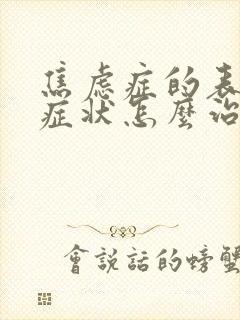 焦虑症的表
症状怎麼治
會説話的螃蟹